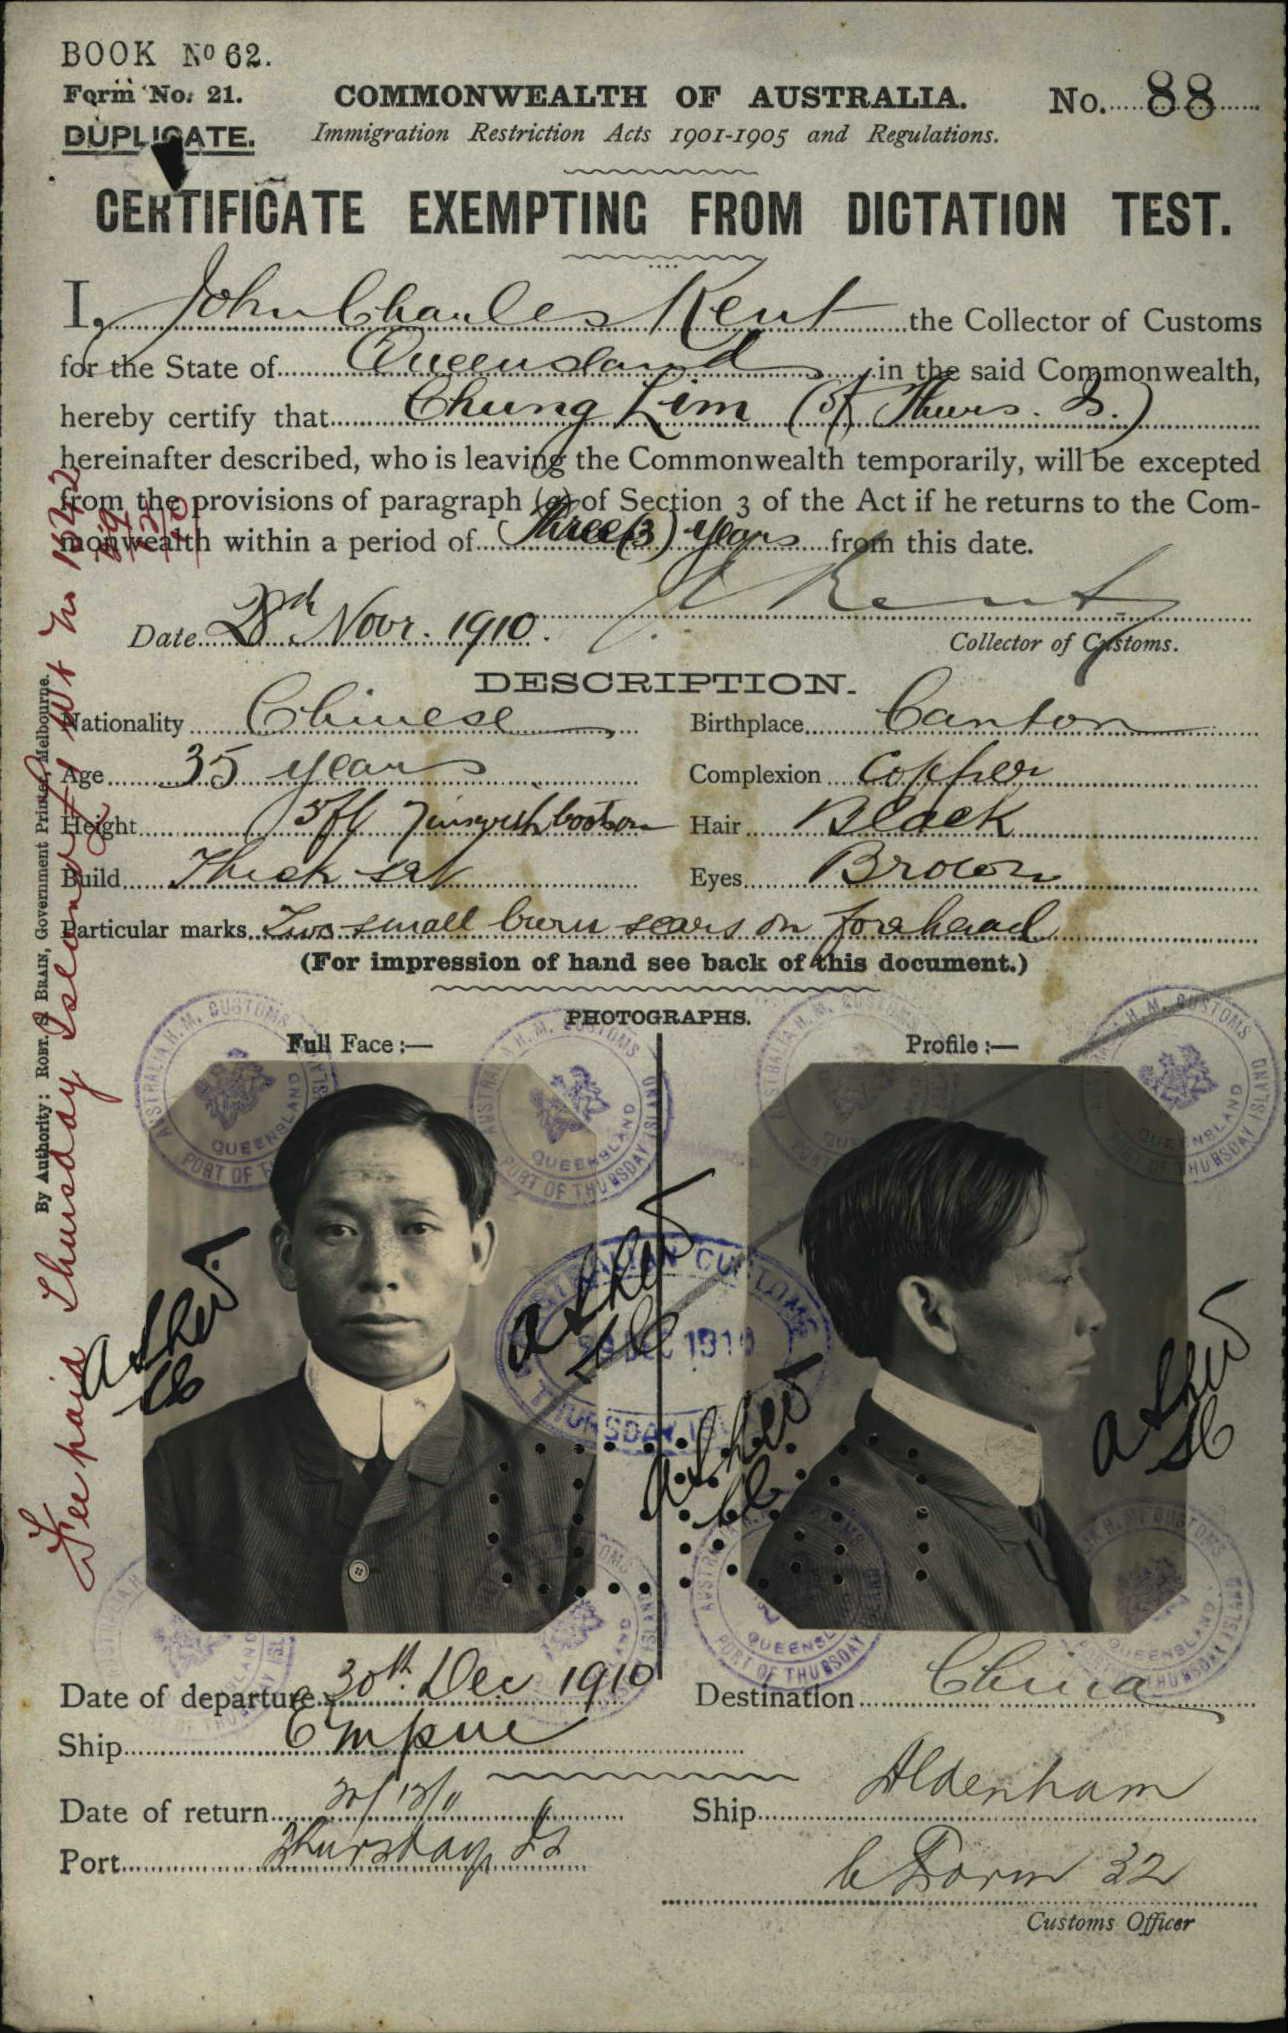 BOOK No 62.
Form No. 21.
DUPLICATE.
COMMONWEALTH OF AUSTRALIA.
Immigration Restriction Acts 1901-1905 and Regulations.
No. 88
CERTIFICATE EXEMPTING FROM DICTATION TEST.
I, John Charles Kent the Collector of Customs
for the State of Queensland in the said Commonwealth,
hereby certify that Chung Lim (of Thurs. Is.)
hereinafter described, who is leaving the Commonwealth temporarily, will be excepted
from the provisions of paragraph (a) of Section 3 of the Act if he returns to the Com-
monwealth within a period of Three (3) years from this date.
Kent
Date Novr. 1910.
Collector of Customs.
DESCRIPTION.
Nationality Chinese
Birthplace Canton
Age 35 years
Complexion Copper
Height 5ft
Hair Black
Build Thick set
Eyes Brown
Particular marks Two small burn scars on forehead
(For impression of hand see back of this document.)
PHOTOGRAPHS.
Full Face:—
Profile:—
AUSTRALIA H.M. CUSTOMS
QUEENSLAND
PORT OF THURSDAY ISLAND
AUSTRALIAN CUSTOMS
DEC 1910
THURSDAY IS
Date of departure 30th Dec 1910
Destination China
Ship Empire
Date of return
Ship Aldenham
Port Thursday Is
Form 32
Customs Officer
By Authority: ROBT. S. BRAIN, Government Printer, Melbourne.
Fee paid Thursday Island